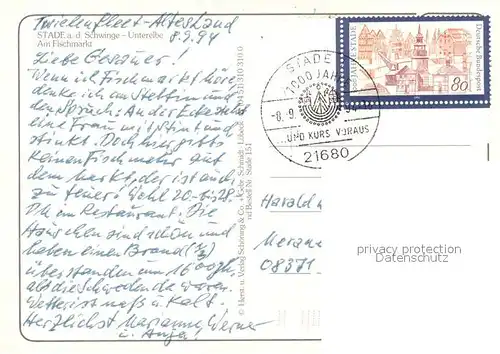 Twielenfleet - Altes Land
8.9.94
STADE a. d. Schwinge - Unterelbe
Am Fischmarkt
Liebe Gesauer!
Wenn ich Fischmarkt höre,
denke ich an Stettin und
den Spruch: An der Ecke steht
eine Frau mit Stint und
stinkt. Doch hier gibts
keinen Fisch mehr auf
dem Markt, der ist auch
zu teuer! Wohl 20,- bis 28,-
DM im Restaurant. Die
Häuschen sind schön und
haben einen Brand (⅔)
überstanden um 1600
als die Schweden da waren.
Wetter ist naß u. kalt.
Herzlichst Marianne, Werner
u. Antje!
© Herst. u. Verlag Schöning & Co. + Gebr. Schmidt, Lübeck
Bestell Nr. Stade 151
1000 JAHRE STADE
Deutsche Bundespost
80
STADE
1000 JAHRE
-8.9.94
...UND KURS VORAUS
21680
Harald
Merane
08371
privacy protection
Datenschutz